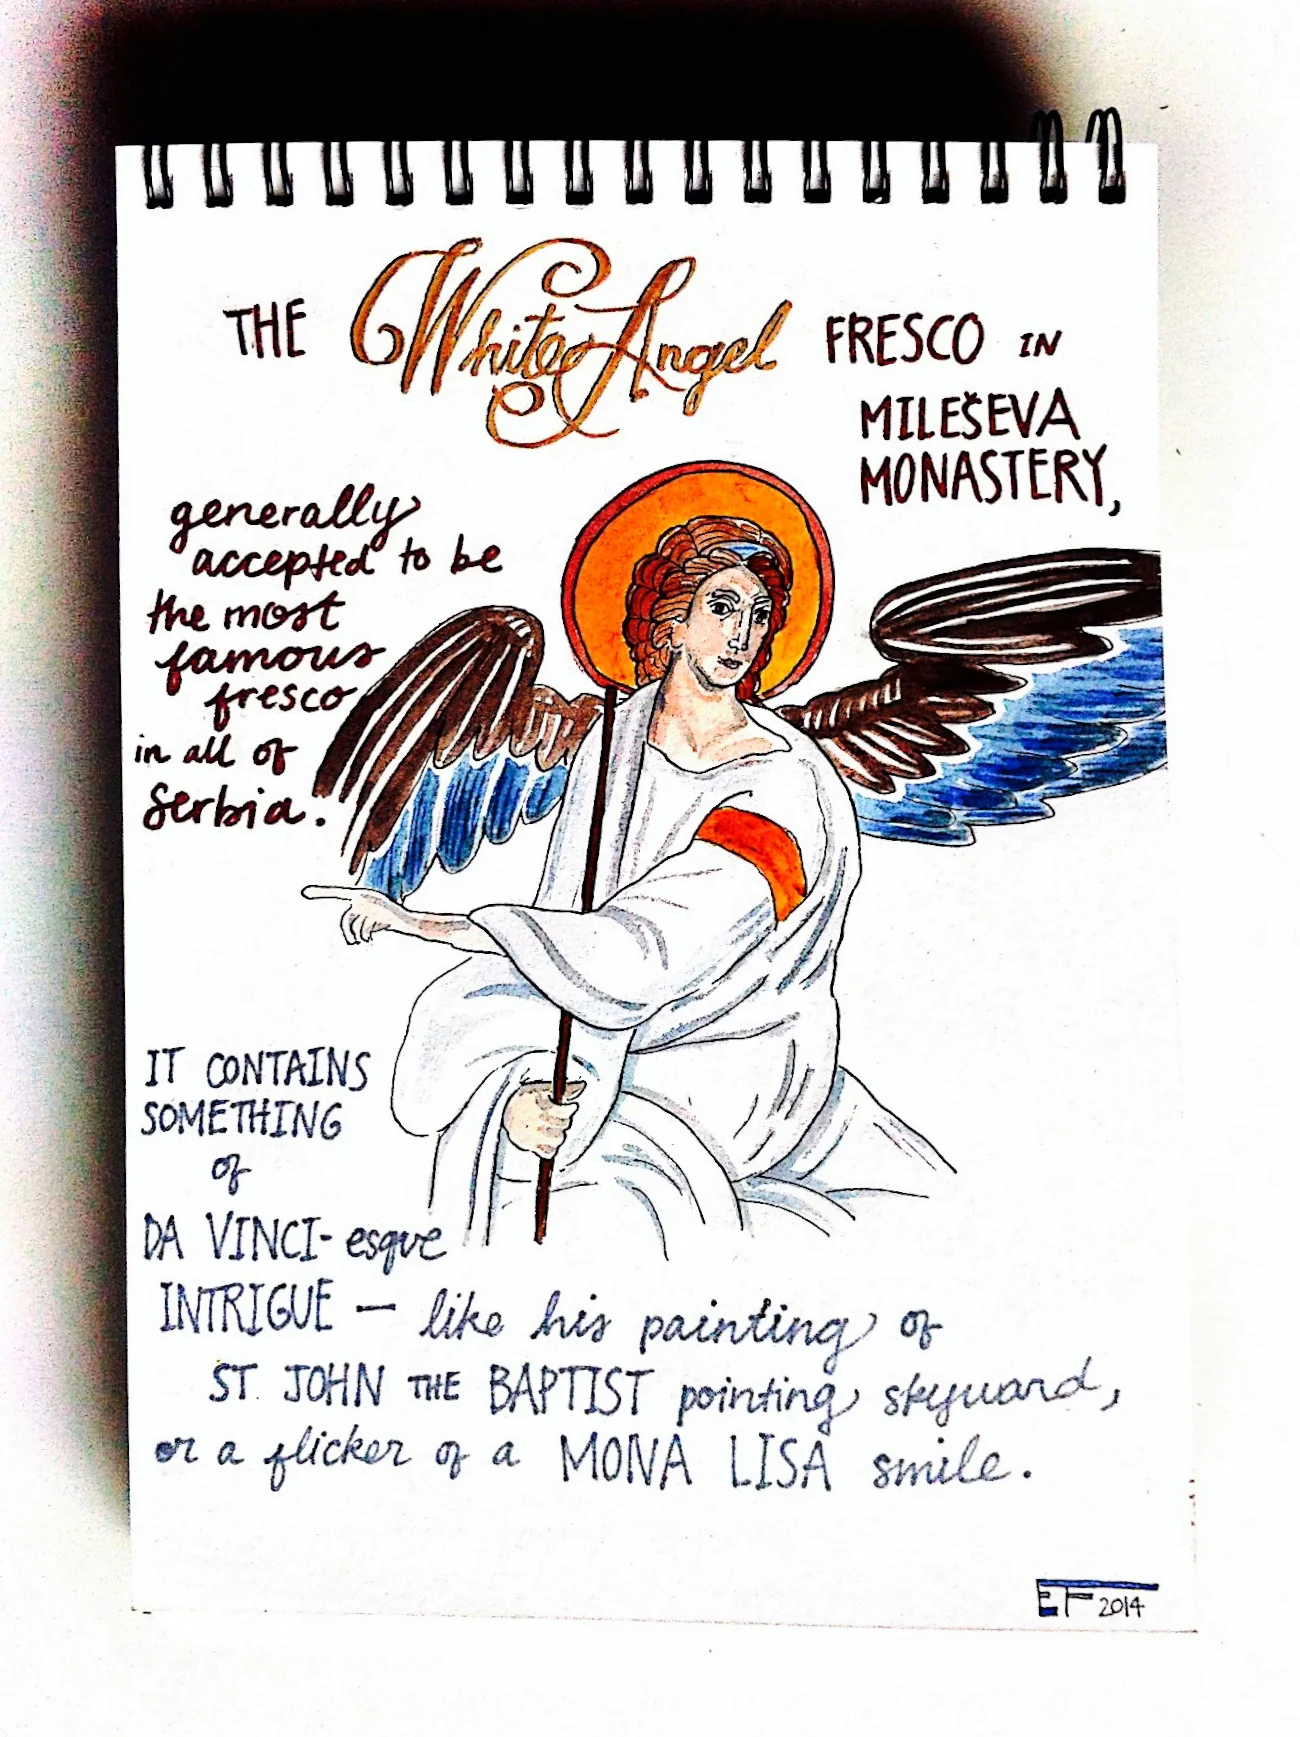 THE White Angel FRESCO IN
MILEŠEVA
MONASTERY,
generally
accepted to be
the most
famous
fresco
in all of
Serbia.
IT CONTAINS
SOMETHING
of
DA VINCI-esque
INTRIGUE — like his painting of
ST. JOHN THE BAPTIST pointing skyward,
or a flicker of a MONA LISA smile.
EF 2014